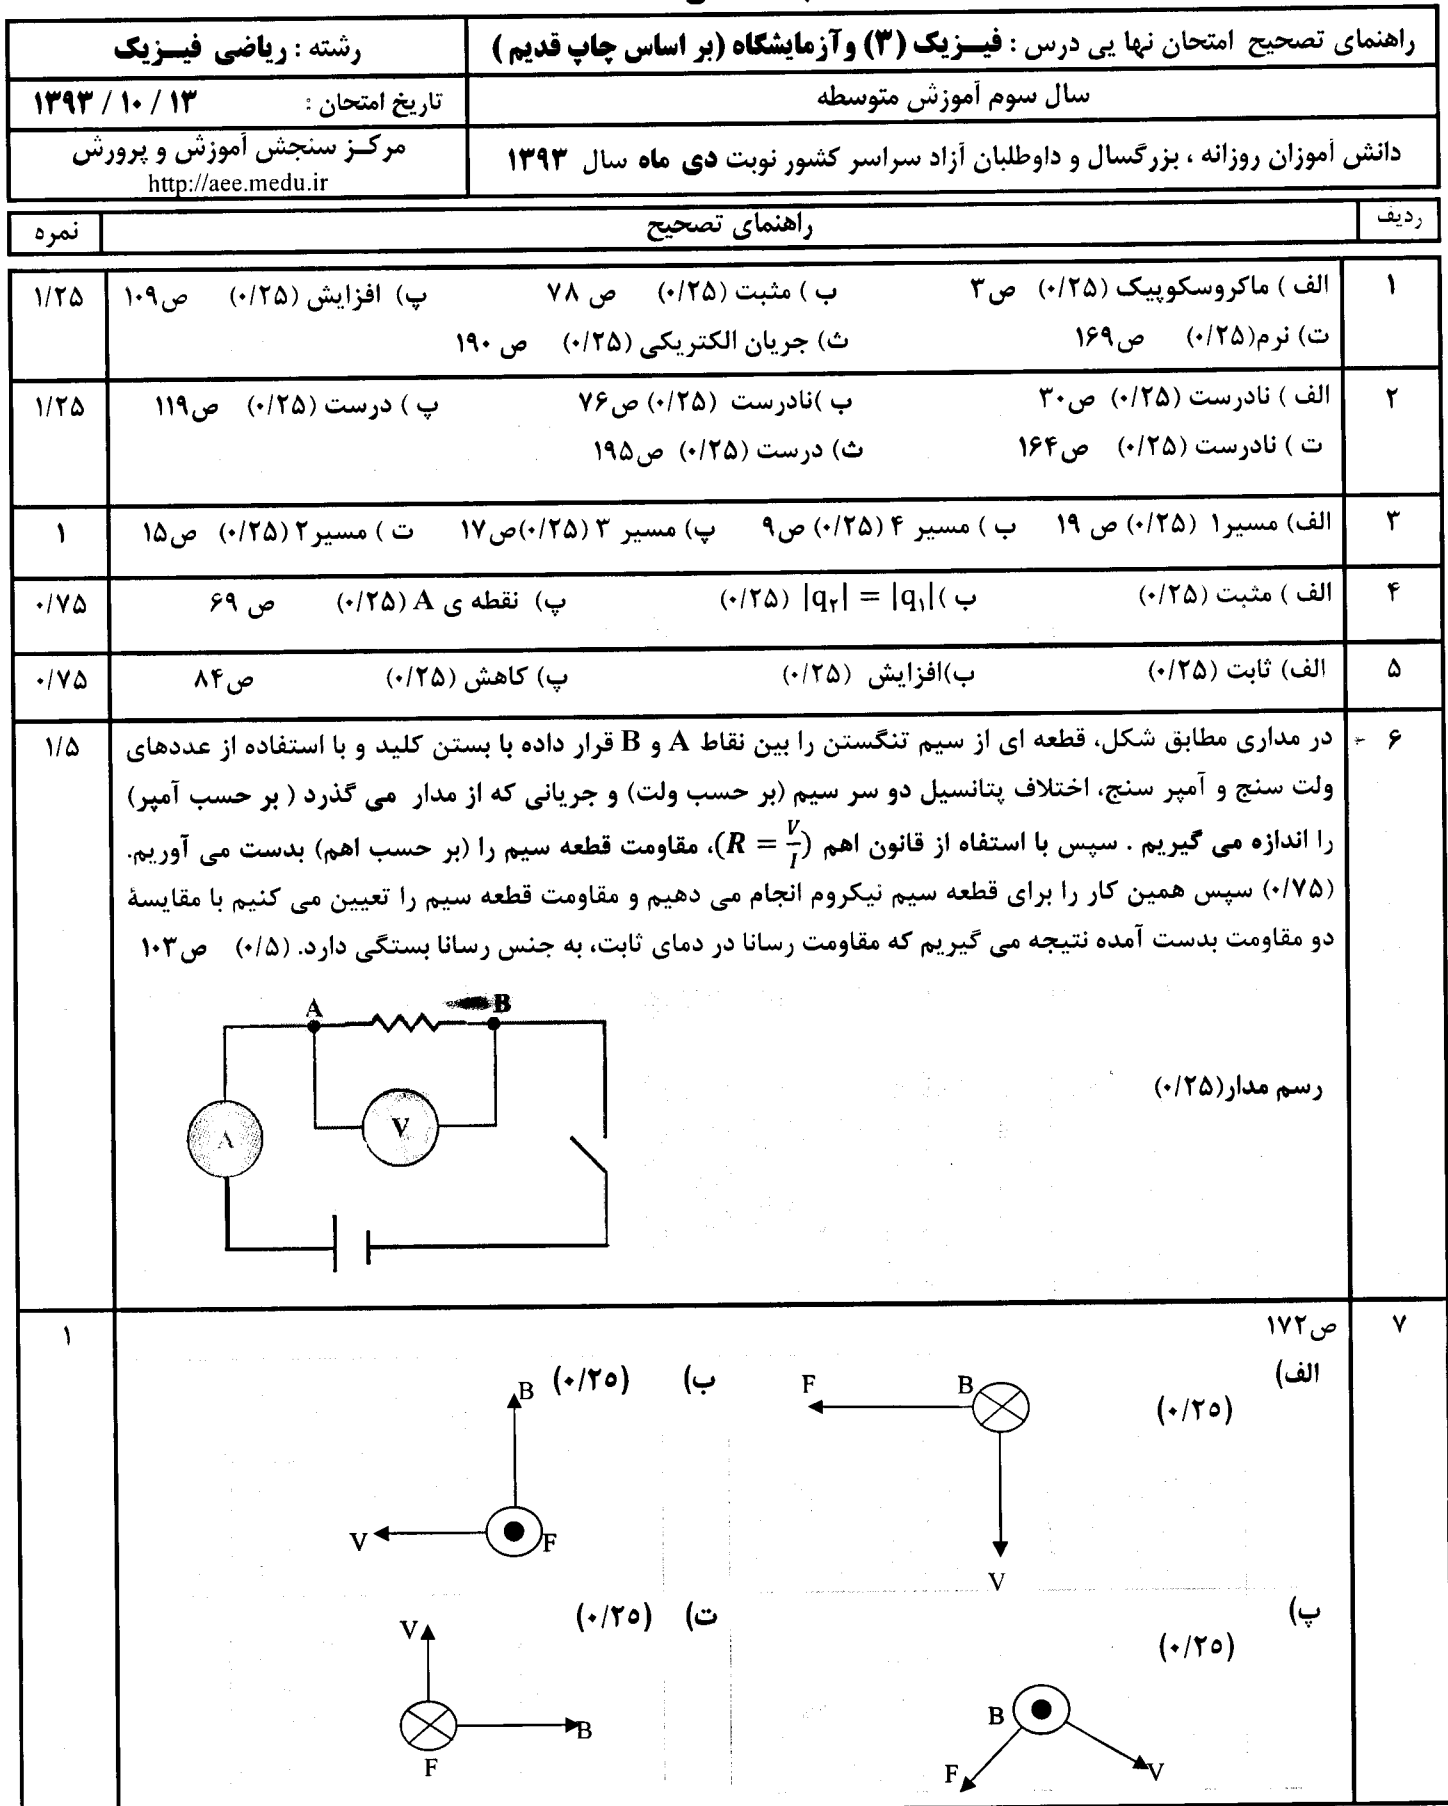 راهنمای تصحیح امتحان نهایی درس : فیـزیک (۳) وآزمایشگاه (بر اساس چاپ قدیم )
رشته : ریاضی فیـزیک
سال سوم آموزش متوسطه
تاریخ امتحان : ۱۳ / ۱۰ / ۱۳۹۳
دانش آموزان روزانه ، بزرگسال و داوطلبان آزاد سراسر کشور نوبت دی ماه سال ۱۳۹۳
مرکـز سنجش آموزش و پرورش
http://aee.medu.ir
ردیف
راهنمای تصحیح
نمره
۱
الف ) ماکروسکوپیک (۰/۲۵) ص۳ ب ) مثبت (۰/۲۵) ص ۷۸ پ) افزایش (۰/۲۵) ص۱۰۹
۱/۲۵
ت) نرم(۰/۲۵) ص۱۶۹ ث) جریان الکتریکی (۰/۲۵) ص ۱۹۰
۲
الف ) نادرست (۰/۲۵) ص۳۰ ب )نادرست (۰/۲۵) ص۷۶ پ ) درست (۰/۲۵) ص۱۱۹
۱/۲۵
ت ) نادرست (۰/۲۵) ص۱۶۴ ث) درست (۰/۲۵) ص۱۹۵
۳
الف) مسیر۱ (۰/۲۵) ص ۱۹ ب ) مسیر ۴ (۰/۲۵) ص۹ پ) مسیر ۳ (۰/۲۵)ص۱۷ ت ) مسیر۲ (۰/۲۵) ص۱۵
۱
۴
الف ) مثبت (۰/۲۵) ب )|q۲| = |q۱| (۰/۲۵) پ) نقطه ی A (۰/۲۵) ص ۶۹
۰/۷۵
۵
الف) ثابت (۰/۲۵) ب)افزایش (۰/۲۵) پ) کاهش (۰/۲۵) ص۸۴
۰/۷۵
۶
در مداری مطابق شکل، قطعه ای از سیم تنگستن را بین نقاط A و B قرار داده با بستن کلید و با استفاده از عددهای
۱/۵
ولت سنج و آمپر سنج، اختلاف پتانسیل دو سر سیم (بر حسب ولت) و جریانی که از مدار می گذرد ( بر حسب آمپر)
را اندازه می گیریم . سپس با استفاه از قانون اهم (R = V/I)، مقاومت قطعه سیم را (بر حسب اهم) بدست می آوریم.
(۰/۷۵) سپس همین کار را برای قطعه سیم نیکروم انجام می دهیم و مقاومت قطعه سیم را تعیین می کنیم با مقایسهٔ
دو مقاومت بدست آمده نتیجه می گیریم که مقاومت رسانا در دمای ثابت، به جنس رسانا بستگی دارد. (۰/۵) ص۱۰۳
A B
رسم مدار(۰/۲۵)
A V
۷
ص۱۷۲
۱
الف)
(۰/۲۵)
F B
V
ب) (۰/۲۵)
B
V F
پ)
(۰/۲۵)
B
F V
ت) (۰/۲۵)
V
B
F